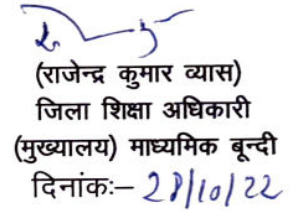 (राजेन्द्र कुमार व्यास)
जिला शिक्षा अधिकारी
(मुख्यालय) माध्यमिक बून्दी
दिनांकः– 28/10/22